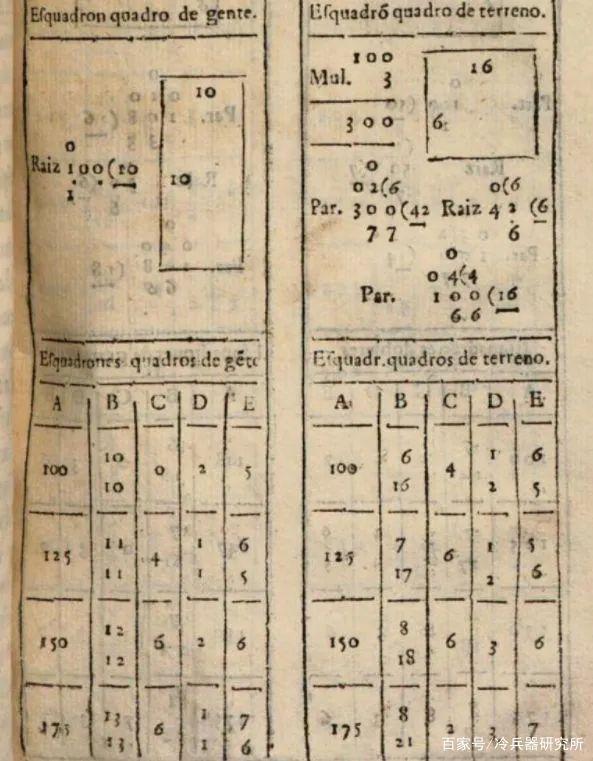 Esquadron quadro de gente.
10
0
Raiz 100(10
10
1
Esquadrõ quadro de terreno.
100
Mul. 3
300
16
6
0
02(6
Par. 300(42
77
0(6
Raiz 42(6
6
0
04(4
Par. 100(16
66
Esquadrones quadros de gẽte
A B C D E
100 10 0 2 5
10
125 11 4 1 6
11 1 5
150 12 6 2 6
12
175 13 6 1 7
13 1 6
Esquadr.quadros de terreno.
A B C D E
100 6 4 1 6
16 2 5
125 7 6 1 5
17 2 6
150 8 6 3 6
18
175 8 2 3 7
21
百家号/冷兵器研究所